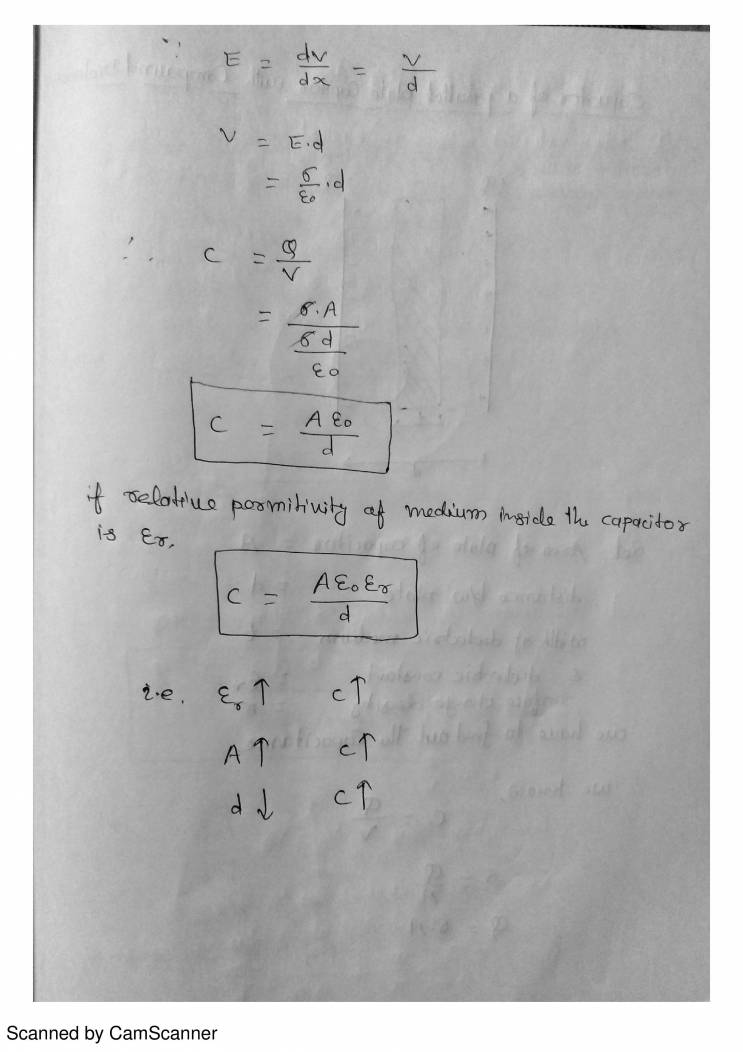 ∵ E = dv/dx = V/d
V = E.d
= σ/ε0 .d
∴ C = Q/V
= σ.A / (σd/ε0)
C = Aε0/d
if relative permitivity of medium inside the capacitor
is εr,
C = Aε0εr/d
i.e. εr ↑ C↑
A ↑ C↑
d ↓ C↑
Scanned by CamScanner